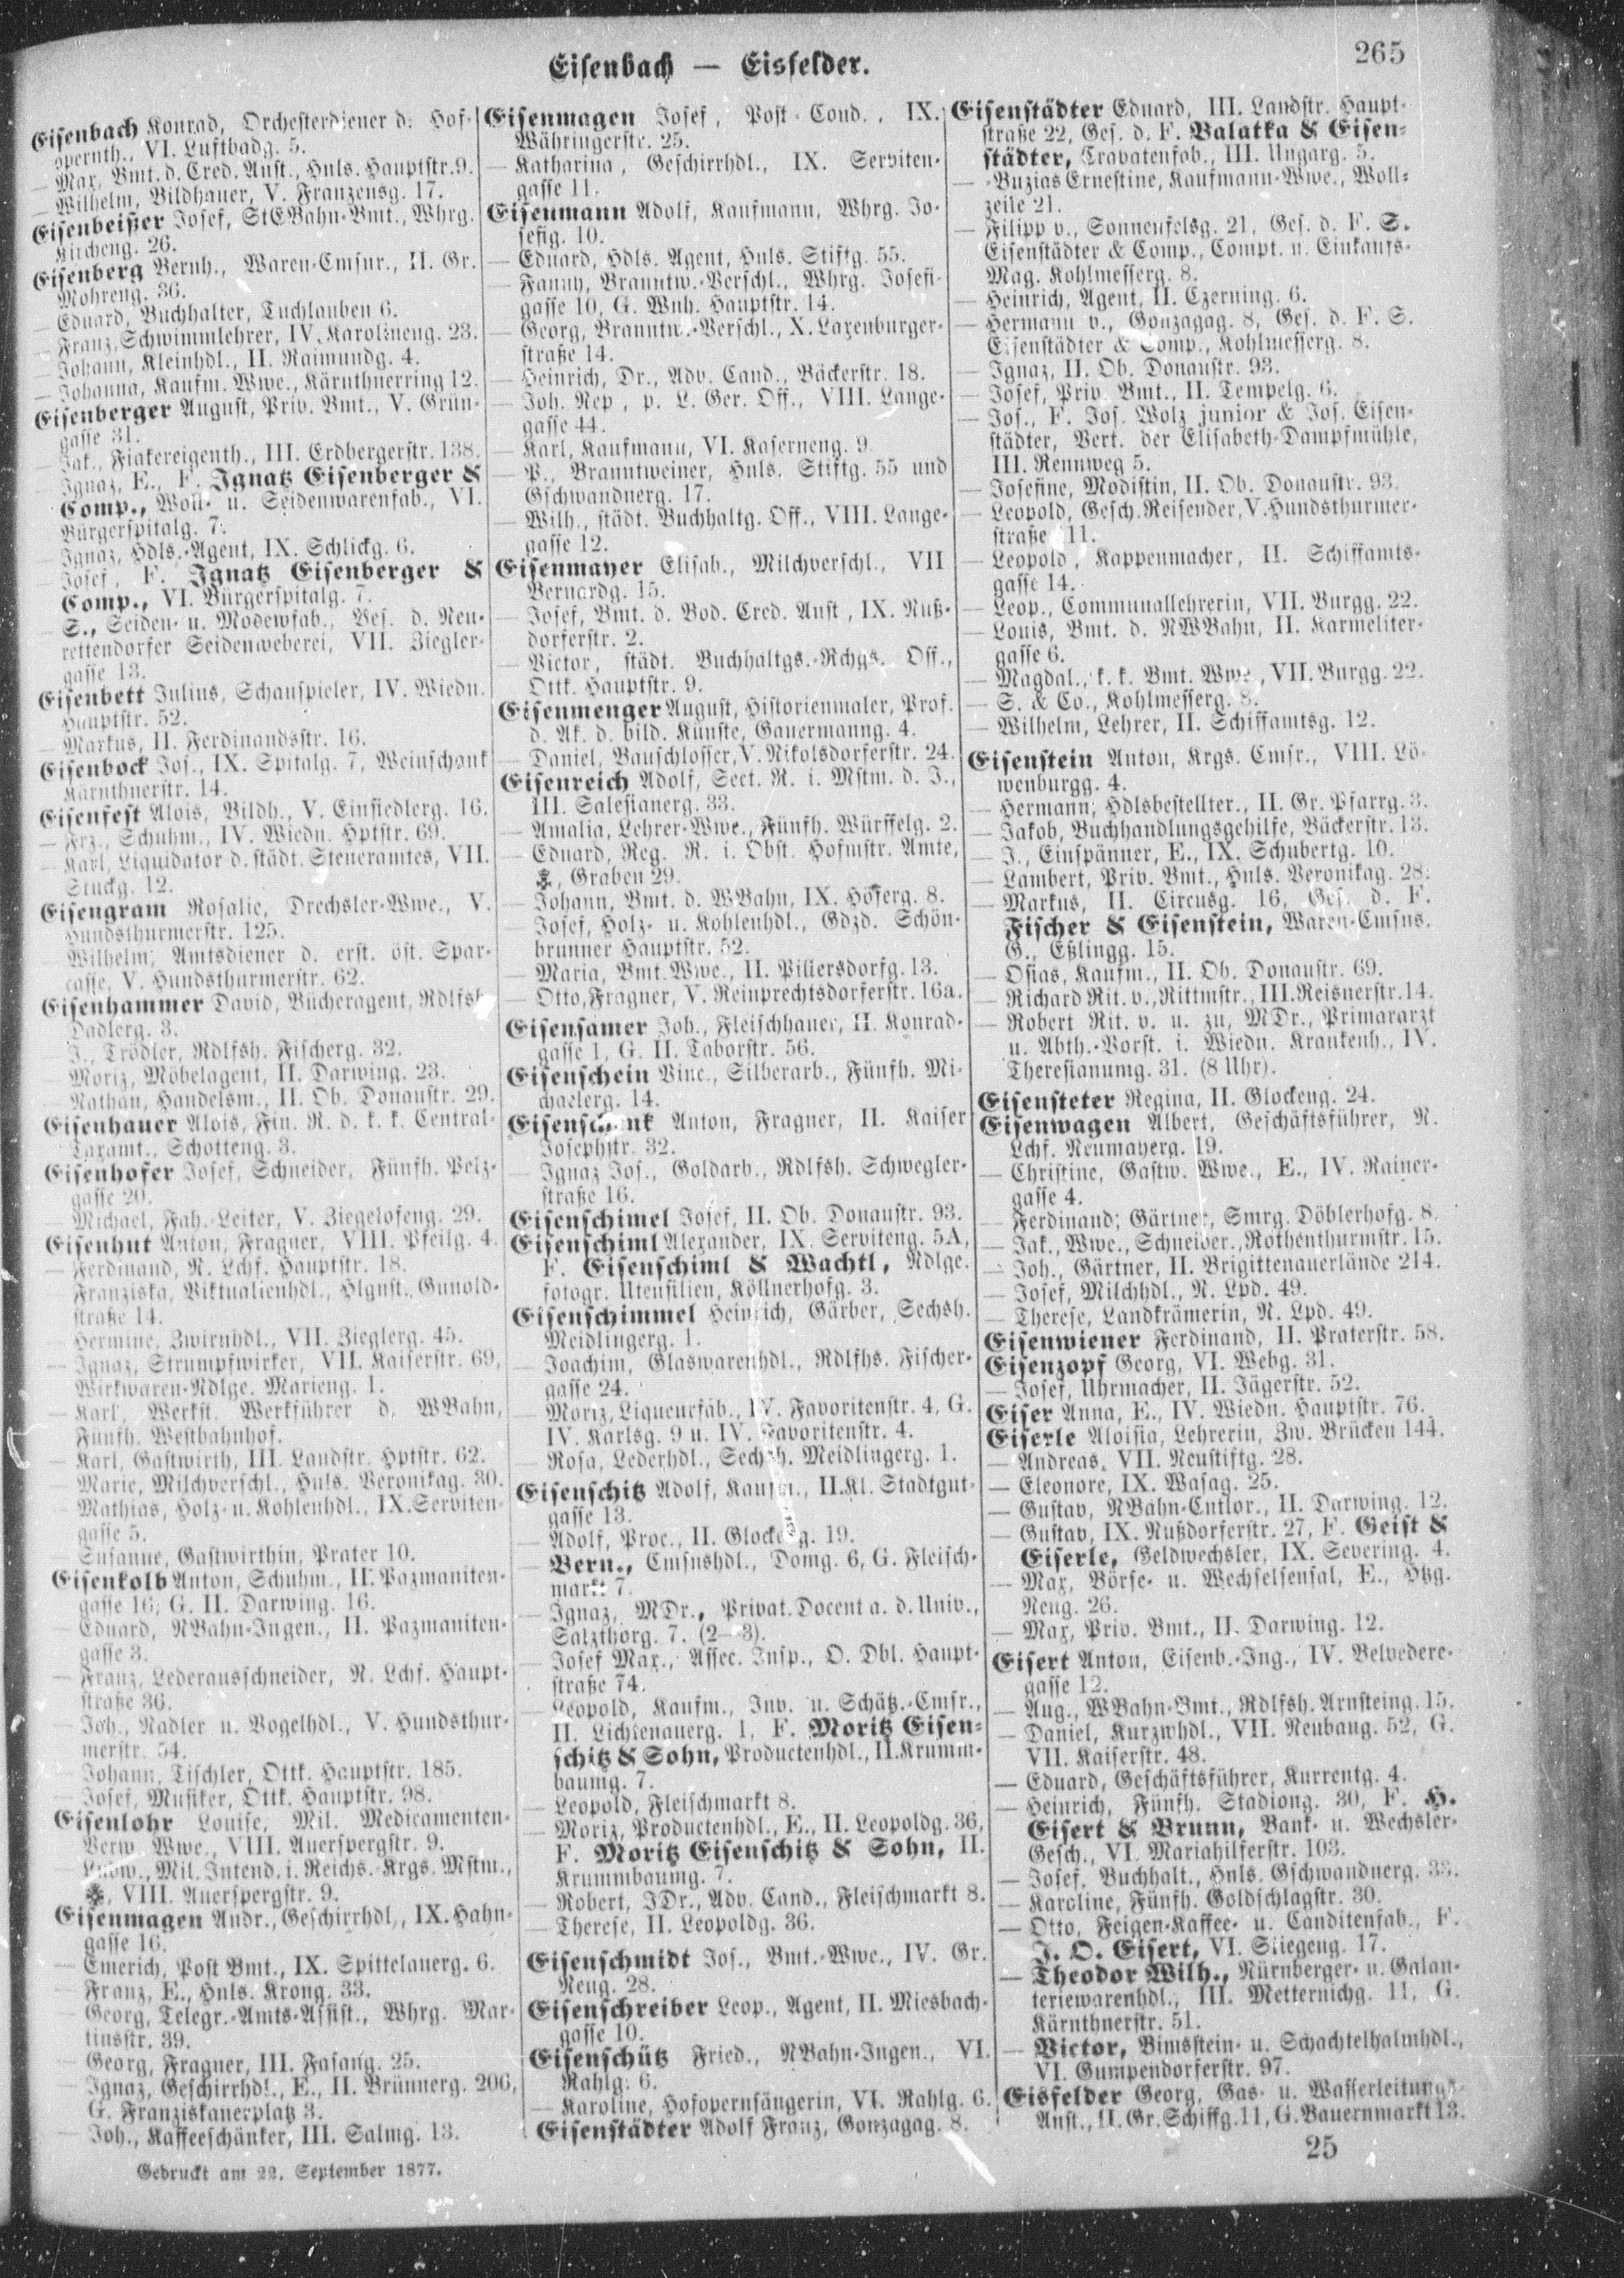 Eisenbach — Eisfelder.
265
Eisenbach Konrad, Orchesterdiener d. Hof-
opernth., VI. Luftbadg. 5.
— Max, Bmt. d. Cred. Anst., Hnls. Hauptstr. 9.
— Wilhelm, Bildhauer, V. Franzensg. 17.
Eisenbeißer Josef, StEBahn-Bmt., Whrg.
Kircheng. 26.
Eisenberg Bernh., Waren-Cmsnr., II. Gr.
Mohreng. 36.
— Eduard, Buchhalter, Tuchlauben 6.
— Franz, Schwimmlehrer, IV. Karolineng. 23.
— Johann, Kleinhdl., II. Raimundg. 4.
— Johanna, Kaufm. Wwe., Kärnthnerring 12.
Eisenberger August, Priv. Bmt., V. Grün-
gasse 31.
— Jak., Fiakereigenth., III. Erdbergerstr. 138.
— Ignaz, E., F. Ignatz Eisenberger &
Comp., Woll- u. Seidenwarenfab., VI.
Bürgerspitalg. 7.
— Ignaz, Hdls.-Agent, IX. Schlickg. 6.
— Josef, F. Ignatz Eisenberger &
Comp., VI. Bürgerspitalg. 7.
— S., Seiden- u. Modewfab., Bes. d. Neu-
rettendorfer Seidenweberei, VII. Ziegler-
gasse 13.
Eisenbett Julius, Schauspieler, IV. Wiedn.
Hauptstr. 52.
— Markus, II. Ferdinandsstr. 16.
Eisenbock Jos., IX. Spitalg. 7, Weinschank
Kärnthnerstr. 14.
Eisenfest Alois, Bildh., V. Einsiedlerg. 16.
— Frz., Schuhm., IV. Wiedn. Hptstr. 69.
— Karl, Liquidator d. städt. Steueramtes, VII.
Stuckg. 12.
Eisengram Rosalie, Drechsler-Wwe., V.
Hundsthurmerstr. 125.
— Wilhelm, Amtsdiener d. erst. öst. Spar-
casse, V. Hundsthurmerstr. 62.
Eisenhammer David, Bücheragent, Rdlfsh.
Dadlerg. 3.
— J., Trödler, Rdlfsh. Fischerg. 32.
— Moriz, Möbelagent, II. Darwing. 23.
— Nathan, Handelsm., II. Ob. Donaustr. 29.
Eisenhauer Alois, Fin. R. d. k. k. Central-
Taxamt., Schotteng. 3.
Eisenhofer Josef, Schneider, Fünfh. Pelz-
gasse 20.
— Michael, Fab.-Leiter, V. Ziegelofeng. 29.
Eisenhut Anton, Fragner, VIII. Pfeilg. 4.
— Ferdinand, N. Lchf. Hauptstr. 18.
Franziska, Viktualienhdl., Hlgnst. Gunold-
straße 14.
— Hermine, Zwirnhdl., VII. Zieglerg. 45.
— Ignaz, Strumpfwirker, VII. Kaiserstr. 69,
Wirkwaren-Ndlge. Marieng. 1.
— Karl, Werkst. Werkführer d. WBahn,
Fünfh. Westbahnhof.
— Karl, Gastwirth, III. Landstr. Hptstr. 62.
Marie, Milchverschl., Hnls. Veronikag. 30.
— Mathias, Holz- u. Kohlenhdl., IX. Serviten-
gasse 5.
— Susanne, Gastwirthin, Prater 10.
Eisenkolb Anton, Schuhm., II. Pazmaniten-
gasse 16, G. II. Darwing. 16.
— Eduard, NBahn-Ingen., II. Pazmaniten-
gasse 3.
— Franz, Lederausschneider, N. Lchf. Haupt-
straße 36.
— Joh., Nadler u. Vogelhdl., V. Hundsthur-
merstr. 54.
— Johann, Tischler, Ottk. Hauptstr. 185.
— Josef, Musiker, Ottk. Hauptstr. 98.
Eisenlohr Louise, Mil. Medicamenten-
Verw. Wwe., VIII. Auerspergstr. 9.
Ludw., Mil. Intend. i. Reichs.-Krgs. Mstm.,
VIII. Auerspergstr. 9.
Eisenmagen Andr., Geschirrhdl., IX. Hahn-
gasse 16.
— Emerich, Post Bmt., IX. Spittelauerg. 6.
— Franz, E., Hnls. Krong. 33.
— Georg, Telegr.-Amts-Assist., Whrg. Mar-
tinsstr. 39.
— Georg, Fragner, III. Fasang. 25.
— Ignaz, Geschirrhdl., E., II. Brünnerg. 206,
G. Franziskanerplatz 3.
Joh., Kaffeeschänker, III. Salmg. 13.
Gedruckt am 22. September 1877.
Eisenmagen Josef, Post-Cond., IX.
Währingerstr. 25.
— Katharina, Geschirrhdl., IX. Serviten-
gasse 11.
Eisenmann Adolf, Kaufmann, Whrg. Jo-
sefig. 10.
— Eduard, Hdls. Agent, Hnls. Stiftg. 55.
— Fanny, Branntw.-Verschl., Whrg. Josefi-
gasse 10, G. Wnh. Hauptstr. 14.
— Georg, Branntw.-Verschl., X. Laxenburger-
straße 14.
— Heinrich, Dr., Adv. Cand., Bäckerstr. 18.
— Joh. Nep., p. L. Ger. Off., VIII. Lange-
gasse 44.
— Karl, Kaufmann, VI. Kaserneng. 9.
— P., Branntweiner, Hnls. Stiftg. 55 und
Gschwandnerg. 17.
— Wilh., städt. Buchhaltg. Off., VIII. Lange-
gasse 12.
Eisenmayer Elisab., Milchverschl., VII
Bernardg. 15.
— Josef, Bmt. d. Bod. Cred. Anst., IX. Nuß-
dorferstr. 2.
— Victor, städt. Buchhaltgs.-Rchgs. Off.,
Ottk. Hauptstr. 9.
Eisenmenger August, Historienmaler, Prof.
d. Ak. d. bild. Künste, Gauermanng. 4.
— Daniel, Bauschlosser, V. Nikolsdorferstr. 24.
Eisenreich Adolf, Sect. R. i. Mstm. d. J.,
III. Salesianerg. 33.
— Amalia, Lehrer-Wwe., Fünfh. Würffelg. 2.
— Eduard, Reg. R. i. Obst. Hofmstr. Amte,
Graben 29.
— Johann, Bmt. d. WBahn, IX. Höferg. 8.
— Josef, Holz- u. Kohlenhdl., Gdzd. Schön-
brunner Hauptstr. 52.
— Maria, Bmt. Wwe., II. Pillersdorfg. 13.
— Otto, Fragner, V. Reinprechtsdorferstr. 16a.
Eisensamer Joh., Fleischhauer, II. Konrad-
gasse 1, G. II. Taborstr. 56.
Eisenschein Vinc., Silberarb., Fünfh. Mi-
chaelerg. 14.
Eisenschenk Anton, Fragner, II. Kaiser
Josephstr. 32.
— Ignaz Jos., Goldarb., Rdlfsh. Schwegler-
straße 16.
Eisenschimel Josef, II. Ob. Donaustr. 93.
Eisenschiml Alexander, IX. Serviteng. 5A,
F. Eisenschiml & Wachtl, Ndlge.
fotogr. Utensilien, Köllnerhofg. 3.
Eisenschimmel Heinrich, Gärber, Sechsh.
Meidlingerg. 1.
— Joachim, Glaswarenhdl., Rdlfhs. Fischer-
gasse 24.
— Moriz, Liqueurfab., IV. Favoritenstr. 4, G.
IV. Karlsg. 9 u. IV. Favoritenstr. 4.
— Rosa, Lederhdl., Sechsh. Meidlingerg. 1.
Eisenschitz Adolf, Kaufm., II. Kl. Stadtgut-
gasse 13.
— Adolf, Proc., II. Glockeng. 19.
— Bern., Cmsnshdl., Domg. 6, G. Fleisch-
markt 7.
— Ignaz, MDr., Privat. Docent a. d. Univ.,
Salzthorg. 7. (2—3).
— Josef Max., Assec. Insp., O. Dbl. Haupt-
straße 74.
— Leopold, Kaufm., Inv. u. Schätz.-Cmsr.,
II. Lichtenauerg. 1, F. Moritz Eisen-
schitz & Sohn, Productenhdl., II. Krumm-
baumg. 7.
— Leopold, Fleischmarkt 8.
— Moriz, Productenhdl., E., II. Leopoldg. 36,
F. Moritz Eisenschitz & Sohn, II.
Krummbaumg. 7.
— Robert, JDr., Adv. Cand., Fleischmarkt 8.
— Therese, II. Leopoldg. 36.
Eisenschmidt Jos., Bmt.-Wwe., IV. Gr.
Neug. 28.
Eisenschreiber Leop., Agent, II. Miesbach-
gasse 10.
Eisenschütz Fried., NBahn-Ingen., VI.
Rahlg. 6.
— Karoline, Hofopernsängerin, VI. Rahlg. 6.
Eisenstädter Adolf Franz, Gonzagag. 8.
Eisenstädter Eduard, III. Landstr. Haupt-
straße 22, Ges. d. F. Balatka & Eisen-
städter, Cravatenfab., III. Ungarg. 5.
— -Buzias Ernestine, Kaufmann-Wwe., Woll-
zeile 21.
— Filipp v., Sonnenfelsg. 21, Ges. d. F. S.
Eisenstädter & Comp., Compt. u. Einkaufs-
Mag. Kohlmesserg. 8.
— Heinrich, Agent, II. Czerning. 6.
— Hermann v., Gonzagag. 8, Ges. d. F. S.
Eisenstädter & Comp., Kohlmesserg. 8.
— Ignaz, II. Ob. Donaustr. 93.
— Josef, Priv. Bmt., II. Tempelg. 6.
— Jos., F. Jos. Wolz junior & Jos. Eisen-
städter, Vert. der Elisabeth-Dampfmühle,
III. Rennweg 5.
— Josefine, Modistin, II. Ob. Donaustr. 93.
— Leopold, Gesch. Reisender, V. Hundsthurmer-
straße 11.
— Leopold, Kappenmacher, II. Schiffamts-
gasse 14.
— Leop., Communallehrerin, VII. Burgg. 22.
— Louis, Bmt. d. NWBahn, II. Karmeliter-
gasse 6.
— Magdal., k. k. Bmt. Wwe., VII. Burgg. 22.
— S. & Co., Kohlmesserg. 8.
— Wilhelm, Lehrer, II. Schiffamtsg. 12.
Eisenstein Anton, Krgs. Cmsr., VIII. Lö-
wenburgg. 4.
— Hermann, Hdlsbestellter., II. Gr. Pfarrg. 3.
— Jakob, Buchhandlungsgehilfe, Bäckerstr. 13.
— J., Einspänner, E., IX. Schubertg. 10.
— Lambert, Priv. Bmt., Hnls. Veronikag. 28.
— Markus, II. Circusg. 16, Ges. d. F.
Fischer & Eisenstein, Waren-Cmsns.
G., Eßlingg. 15.
— Osias, Kaufm., II. Ob. Donaustr. 69.
— Richard Rit. v., Rittmstr., III. Reisnerstr. 14.
— Robert Rit. v. u. zu, MDr., Primararzt
u. Abth.-Vorst. i. Wiedn. Krankenh., IV.
Theresianumg. 31. (8 Uhr).
Eisensteter Regina, II. Glockeng. 24.
Eisenwagen Albert, Geschäftsführer, N.
Lchf. Neumayerg. 19.
— Christine, Gastw. Wwe., E., IV. Rainer-
gasse 4.
— Ferdinand, Gärtner, Smrg. Döblerhofg. 8.
— Jak., Wwe., Schneider., Rothenthurmstr. 15.
— Joh., Gärtner, II. Brigittenauerlände 214.
— Josef, Milchhdl., N. Lpd. 49.
— Therese, Landkrämerin, N. Lpd. 49.
Eisenwiener Ferdinand, II. Praterstr. 58.
Eisenzopf Georg, VI. Webg. 31.
— Josef, Uhrmacher, II. Jägerstr. 52.
Eiser Anna, E., IV. Wiedn. Hauptstr. 76.
Eiserle Aloisia, Lehrerin, Zw. Brücken 144.
— Andreas, VII. Neustiftg. 28.
— Eleonore, IX. Wasag. 25.
— Gustav, NBahn-Cntlor., II. Darwing. 12.
— Gustav, IX. Nußdorferstr. 27, F. Geist &
Eiserle, Geldwechsler, IX. Severing. 4.
— Max, Börse- u. Wechselsensal, E., Htzg.
Neug. 26.
— Max, Priv. Bmt., II. Darwing. 12.
Eisert Anton, Eisenb.-Ing., IV. Belvedere-
gasse 12.
— Aug., WBahn-Bmt., Rdlfsh. Arnsteing. 15.
— Daniel, Kurzwhdl., VII. Neubaug. 52, G.
VII. Kaiserstr. 48.
— Eduard, Geschäftsführer, Kurrentg. 4.
— Heinrich, Fünfh. Stadiong. 30, F. H.
Eisert & Brunn, Bank- u. Wechsler-
Gesch., VI. Mariahilferstr. 103.
— Josef, Buchhalt., Hnls. Gschwandnerg. 33.
— Karoline, Fünfh. Goldschlagstr. 30.
— Otto, Feigen-Kaffee- u. Canditenfab., F.
J. O. Eisert, VI. Stiegeng. 17.
— Theodor Wilh., Nürnberger- u. Galan-
teriewarenhdl., III. Metternichg. 11, G.
Kärnthnerstr. 51.
— Victor, Bimsstein- u. Schachtelhalmhdl.,
VI. Gumpendorferstr. 97.
Eisfelder Georg, Gas- u. Wasserleitungs-
Anst., II. Gr. Schiffg. 11, G. Bauernmarkt 13.
25